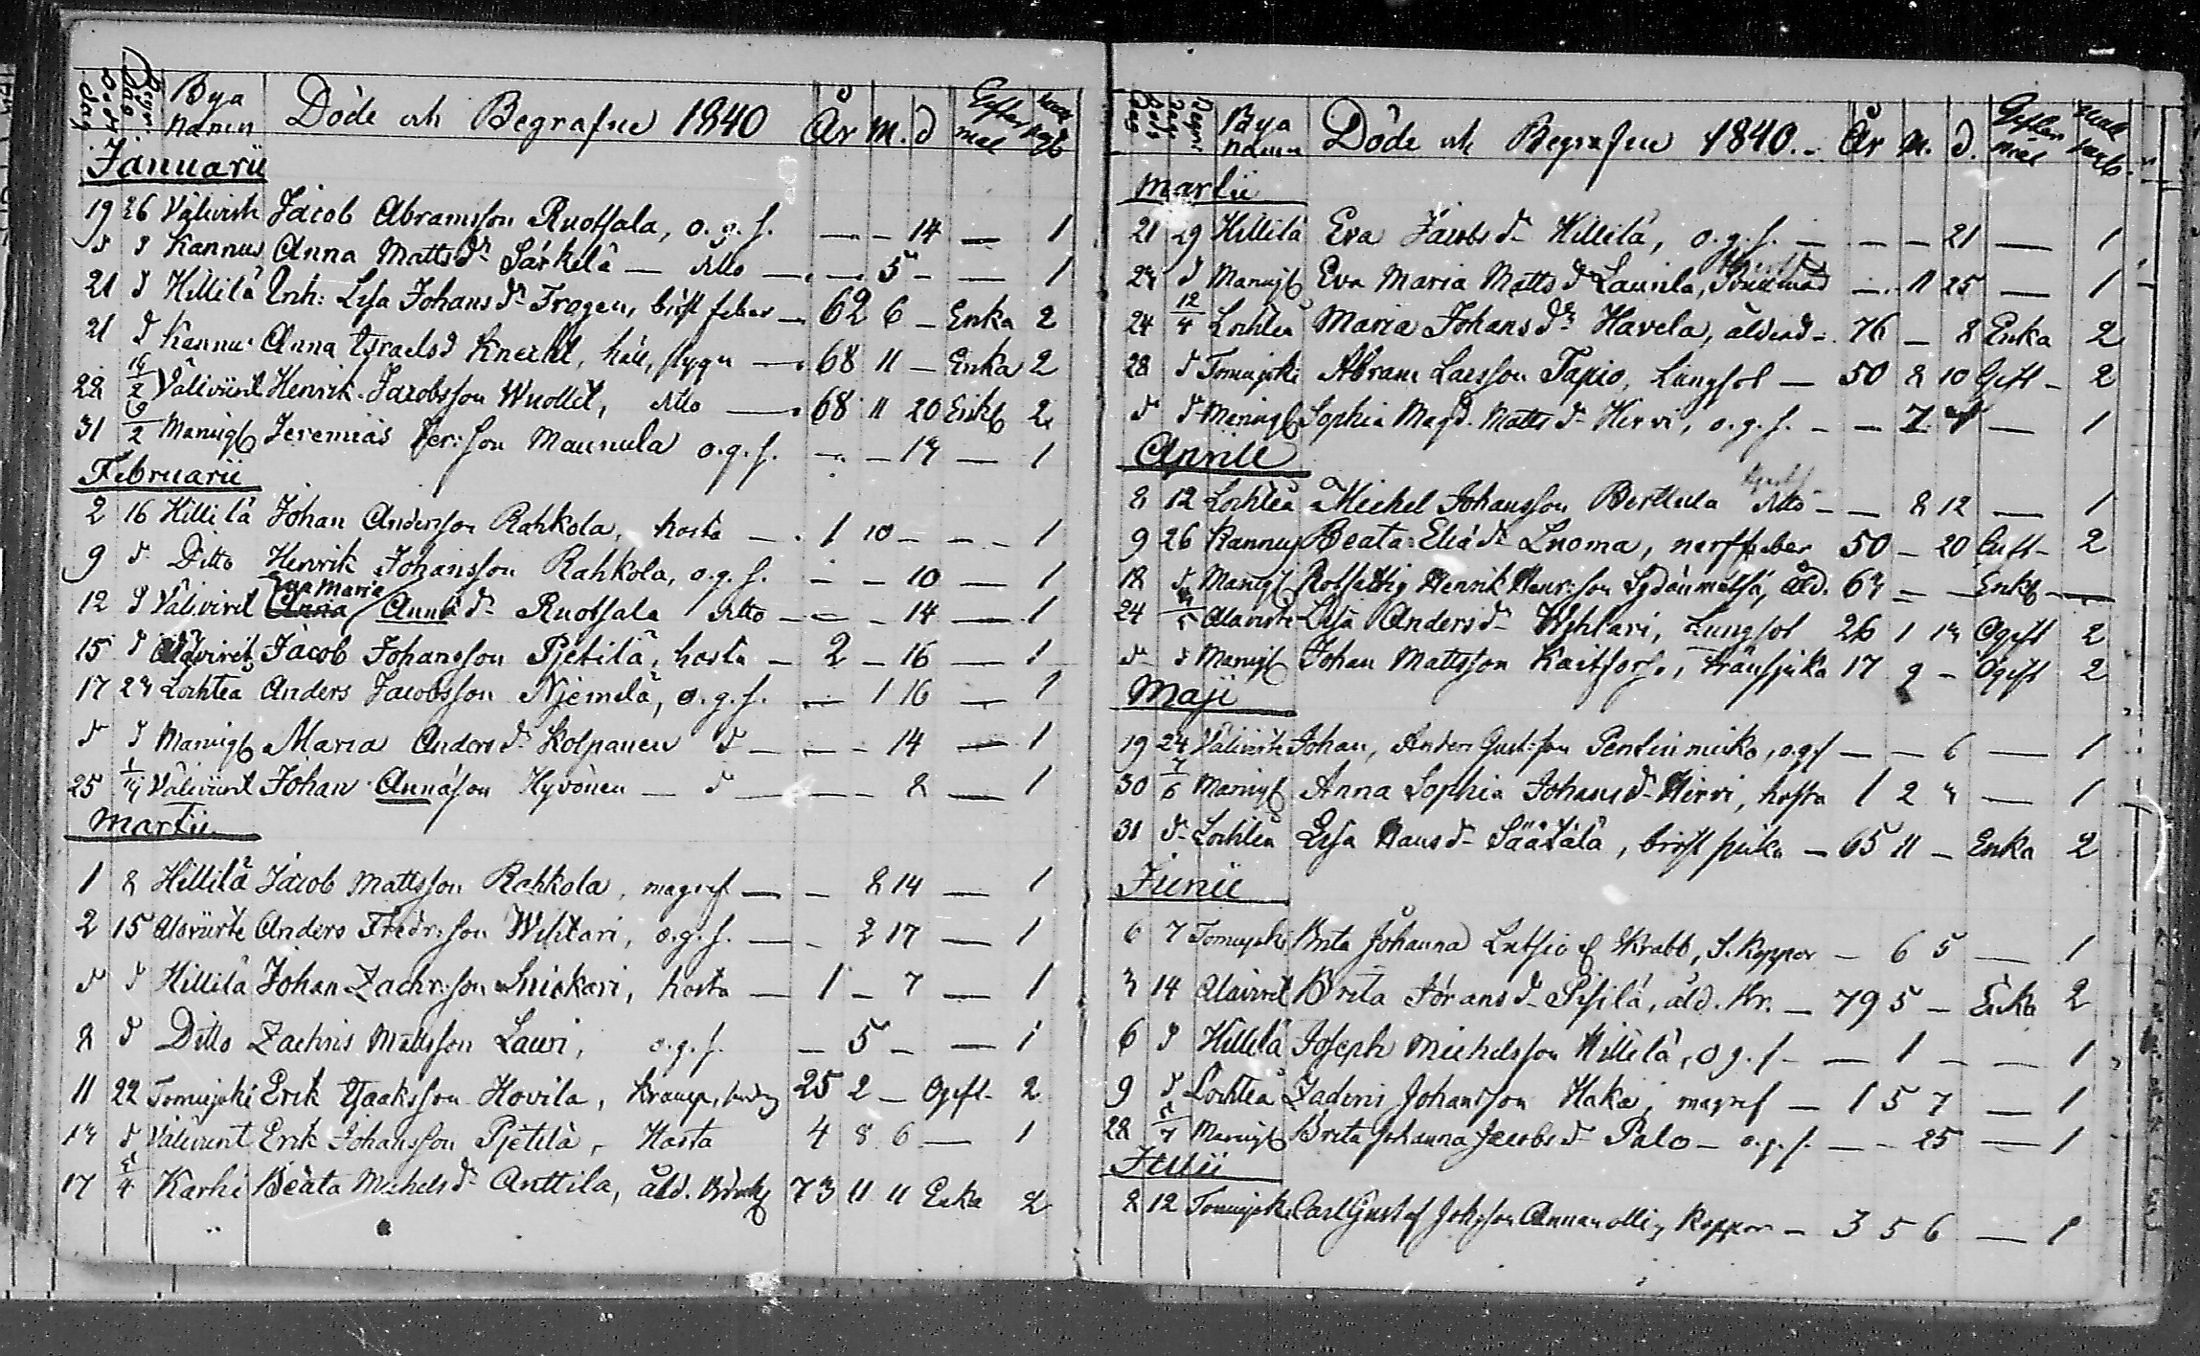 Bya namn Döde och Begrafne 1840 År M. d Gifter mål
Januarii
19 26 Välivirt Jacob Abramsson Ruotsala, o.g.s. — — 14 — 1
d d Kannus Anna Mattsdr Särkelä — ditto — — 5 — — 1
21 d Hillilä Enk: Lisa Johansdr Frogen, bröst feber — 62 6 — Enka 2
21 d Kannus Anna Israelsd Knecht, håll, stygn — 68 11 — Enka 2
28 /2 Väliviirt Henrik Jacobsson Wuollet, ditto — 68 11 20 Enkl 2
31 /2 Marnigb Jeremias Jer:son Maunula o.g.s. — — 13 — 1
Februarii
2 16 Hillilä Johan Andersson Rahkola, hosta — 1 10 — — 1
9 d Ditto Henrik Johansson Rahkola, o.g.s. — — 10 — 1
12 d Välivirt Anna Eva Maria Annäd Ruotsala ditto — — 14 — 1
15 d Alavirt Jacob Johansson Pjetilä, hosta — 2 — 16 — 1
17 23 Lochteå Anders Jacobsson Njemelä, o.g.s. — 1 16 — 1
d d Marnigb Maria Andersd Kolpanen d — — 14 — 1
25 1/3 Väliviirt Johan Annäson Hyvönen — d — — 8 — 1
Martii
1 8 Hillilä Jacob Mattsson Rahkola, magref — — 8 14 — 1
2 15 Alaviirte Anders Fredr:son Wihtari, o.g.s. — — 2 17 — 1
d d Hillilä Johan Zachr:son Snickari, hosta — 1 — 7 — 1
8 d Ditto Zachris Mattsson Lauri, o.g.s. — 5 — — 1
11 22 Tomujoki Erik Isaksson Hovila, 25 2 — Ogift 2
13 d Välivirt Erik Johansson Pjetilä, Hosta 4 8 6 — 1
17 5/4 Karhi Beata Michelsdr Anttila, åld. Bräckl 73 11 11 Enka 2
Bya namn Döde och Begrafne 1840. År M. d. Gifter mål
Martii
21 29 Hillilä Eva Jacobsd Hillilä, o.g.s. — — — 21 — 1
23 d Marnigb Eva Maria Mattsd Launila, — 11 25 — 1
24 12/4 Lochteå Maria Johansdr Havela, ålderd. 76 — 8 Enka 2
28 d Tomujoki Abram Larsson Tapio, Lungsot — 50 8 10 Gift 2
d d Marnigb Sophia Magd. Mattsd Hirvi, o.g.s. — — 7 — 1
Aprill
8 12 Lochteå Michel Johansson Berttula ditto — — 8 12 — 1
9 26 Kannus Beata Eliäd Luoma, nerffeber 50 — 20 Gift 2
18 d Marnigb Rotfattig Henrik Henr:son Sydänmetsä, åld. 63 — — Enkl —
24 3/5 Alavirte Lisa Andersd Wihtari, Lungsot 26 1 13 Ogift 2
d d Marnigb Johan Mattsson Kaitfors, bränsjuka 17 9 — Ogift 2
Maji
19 24 Välivirte Johan, Anders Gust:son Pentinmiko, o.g.s — — 6 — 1
30 7/6 Marnigb Anna Sophia Johansd Hirvi, hosta 1 2 3 — 1
31 d Lochteå Lisa Hansd Säätälä, bröst sjuka — 65 11 — Enka 2
Junii
6 7 Tomujoki Brita Johanna Lutsio f Krabb, S. Koppor — 6 5 — 1
3 14 Alavirt Brita Jöransd Pisilä, åld. Kr. — 79 5 — Enka 2
6 d Hillilä Joseph Michelsson Hillilä, o.g.s — — 1 — — 1
9 d Lochteå Zachris Johansson Haka, magref — 1 5 7 — 1
28 5/7 Marnigb Brita Johanna Jacobsd Palo — o.g.s. — — 25 — 1
Julii
8 12 Tomujoki Carl Gustaf Johsson Annanolli, Koppor — 3 5 6 — 1